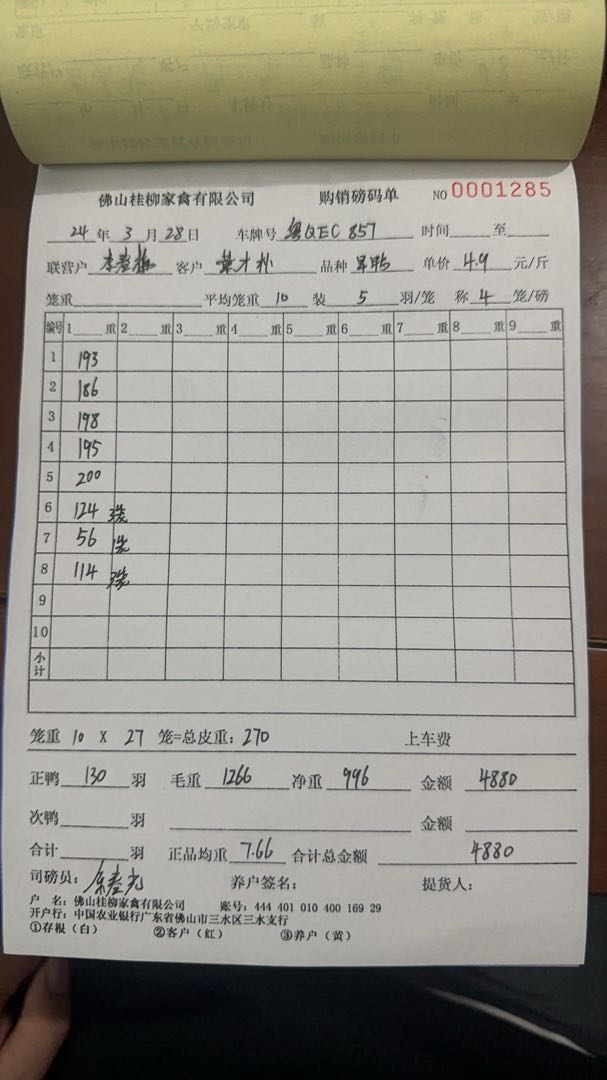 佛山桂柳家禽有限公司 购销磅码单 NO 0001285
24 年 3 月 28 日 车牌号 粤QEC 857 时间 至
联营户 客户 品种 单价 4.9 元/斤
笼重 平均笼重 10 装 5 羽/笼 称 4 笼/磅
编号 1 重 2 重 3 重 4 重 5 重 6 重 7 重 8 重 9 重
1 193
2 186
3 198
4 195
5 200
6 124 3笼
7 56 1笼
8 114 3笼
9
10
小计
笼重 10 X 27 笼=总皮重: 270 上车费
正鸭 130 羽 毛重 1266 净重 996 金额 4880
次鸭 羽 金额
合计 羽 正品均重 7.66 合计总金额 4880
司磅员: 养户签名: 提货人:
户 名: 佛山桂柳家禽有限公司 账号: 444 401 010 400 169 29
开户行: 中国农业银行广东省佛山市三水区三水支行
①存根(白) ②客户(红) ③养户(黄)